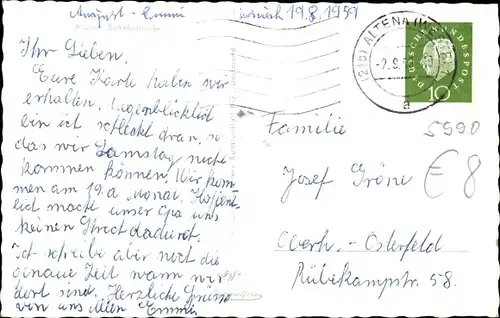 August - Emmi 19.8.1959
Ihr Lieben.
Eure Karte haben wir
erhalten. Augenblicklich
bin ich schleckt dran, so
das wir Samstag nicht
kommen können. Wir kom-
men am 19. a Monat. Hoffent-
lich macht unser Opa uns
keinen Strect dadurch.
Ich schreibe aber noct die
genaue Zeit wann wir
dort sind. Herzliche Grüsse
von uns allen Emmi
(21b) ALTENA
a
DEUTSCHE BUNDESPOST
10
5990
€ 8
Familie
Josef Gröne
Oberh.-Osterfeld
Rübekampstr. 58.